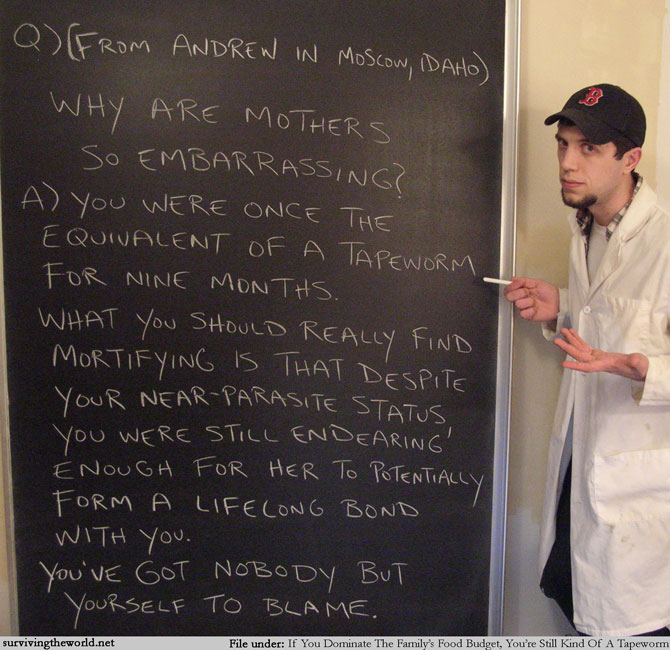 Q) (FROM ANDREW IN MOSCOW, IDAHO)
WHY ARE MOTHERS
SO EMBARRASSING?
A) YOU WERE ONCE THE
EQUIVALENT OF A TAPEWORM
FOR NINE MONTHS.
WHAT YOU SHOULD REALLY FIND
MORTIFYING IS THAT DESPITE
YOUR NEAR-PARASITE STATUS
YOU WERE STILL ENDEARING'
ENOUGH FOR HER TO POTENTIALLY
FORM A LIFELONG BOND
WITH YOU.
YOU'VE GOT NOBODY BUT
YOURSELF TO BLAME.
B
survivingtheworld.net File under: If You Dominate The Family's Food Budget, You're Still Kind Of A Tapeworm